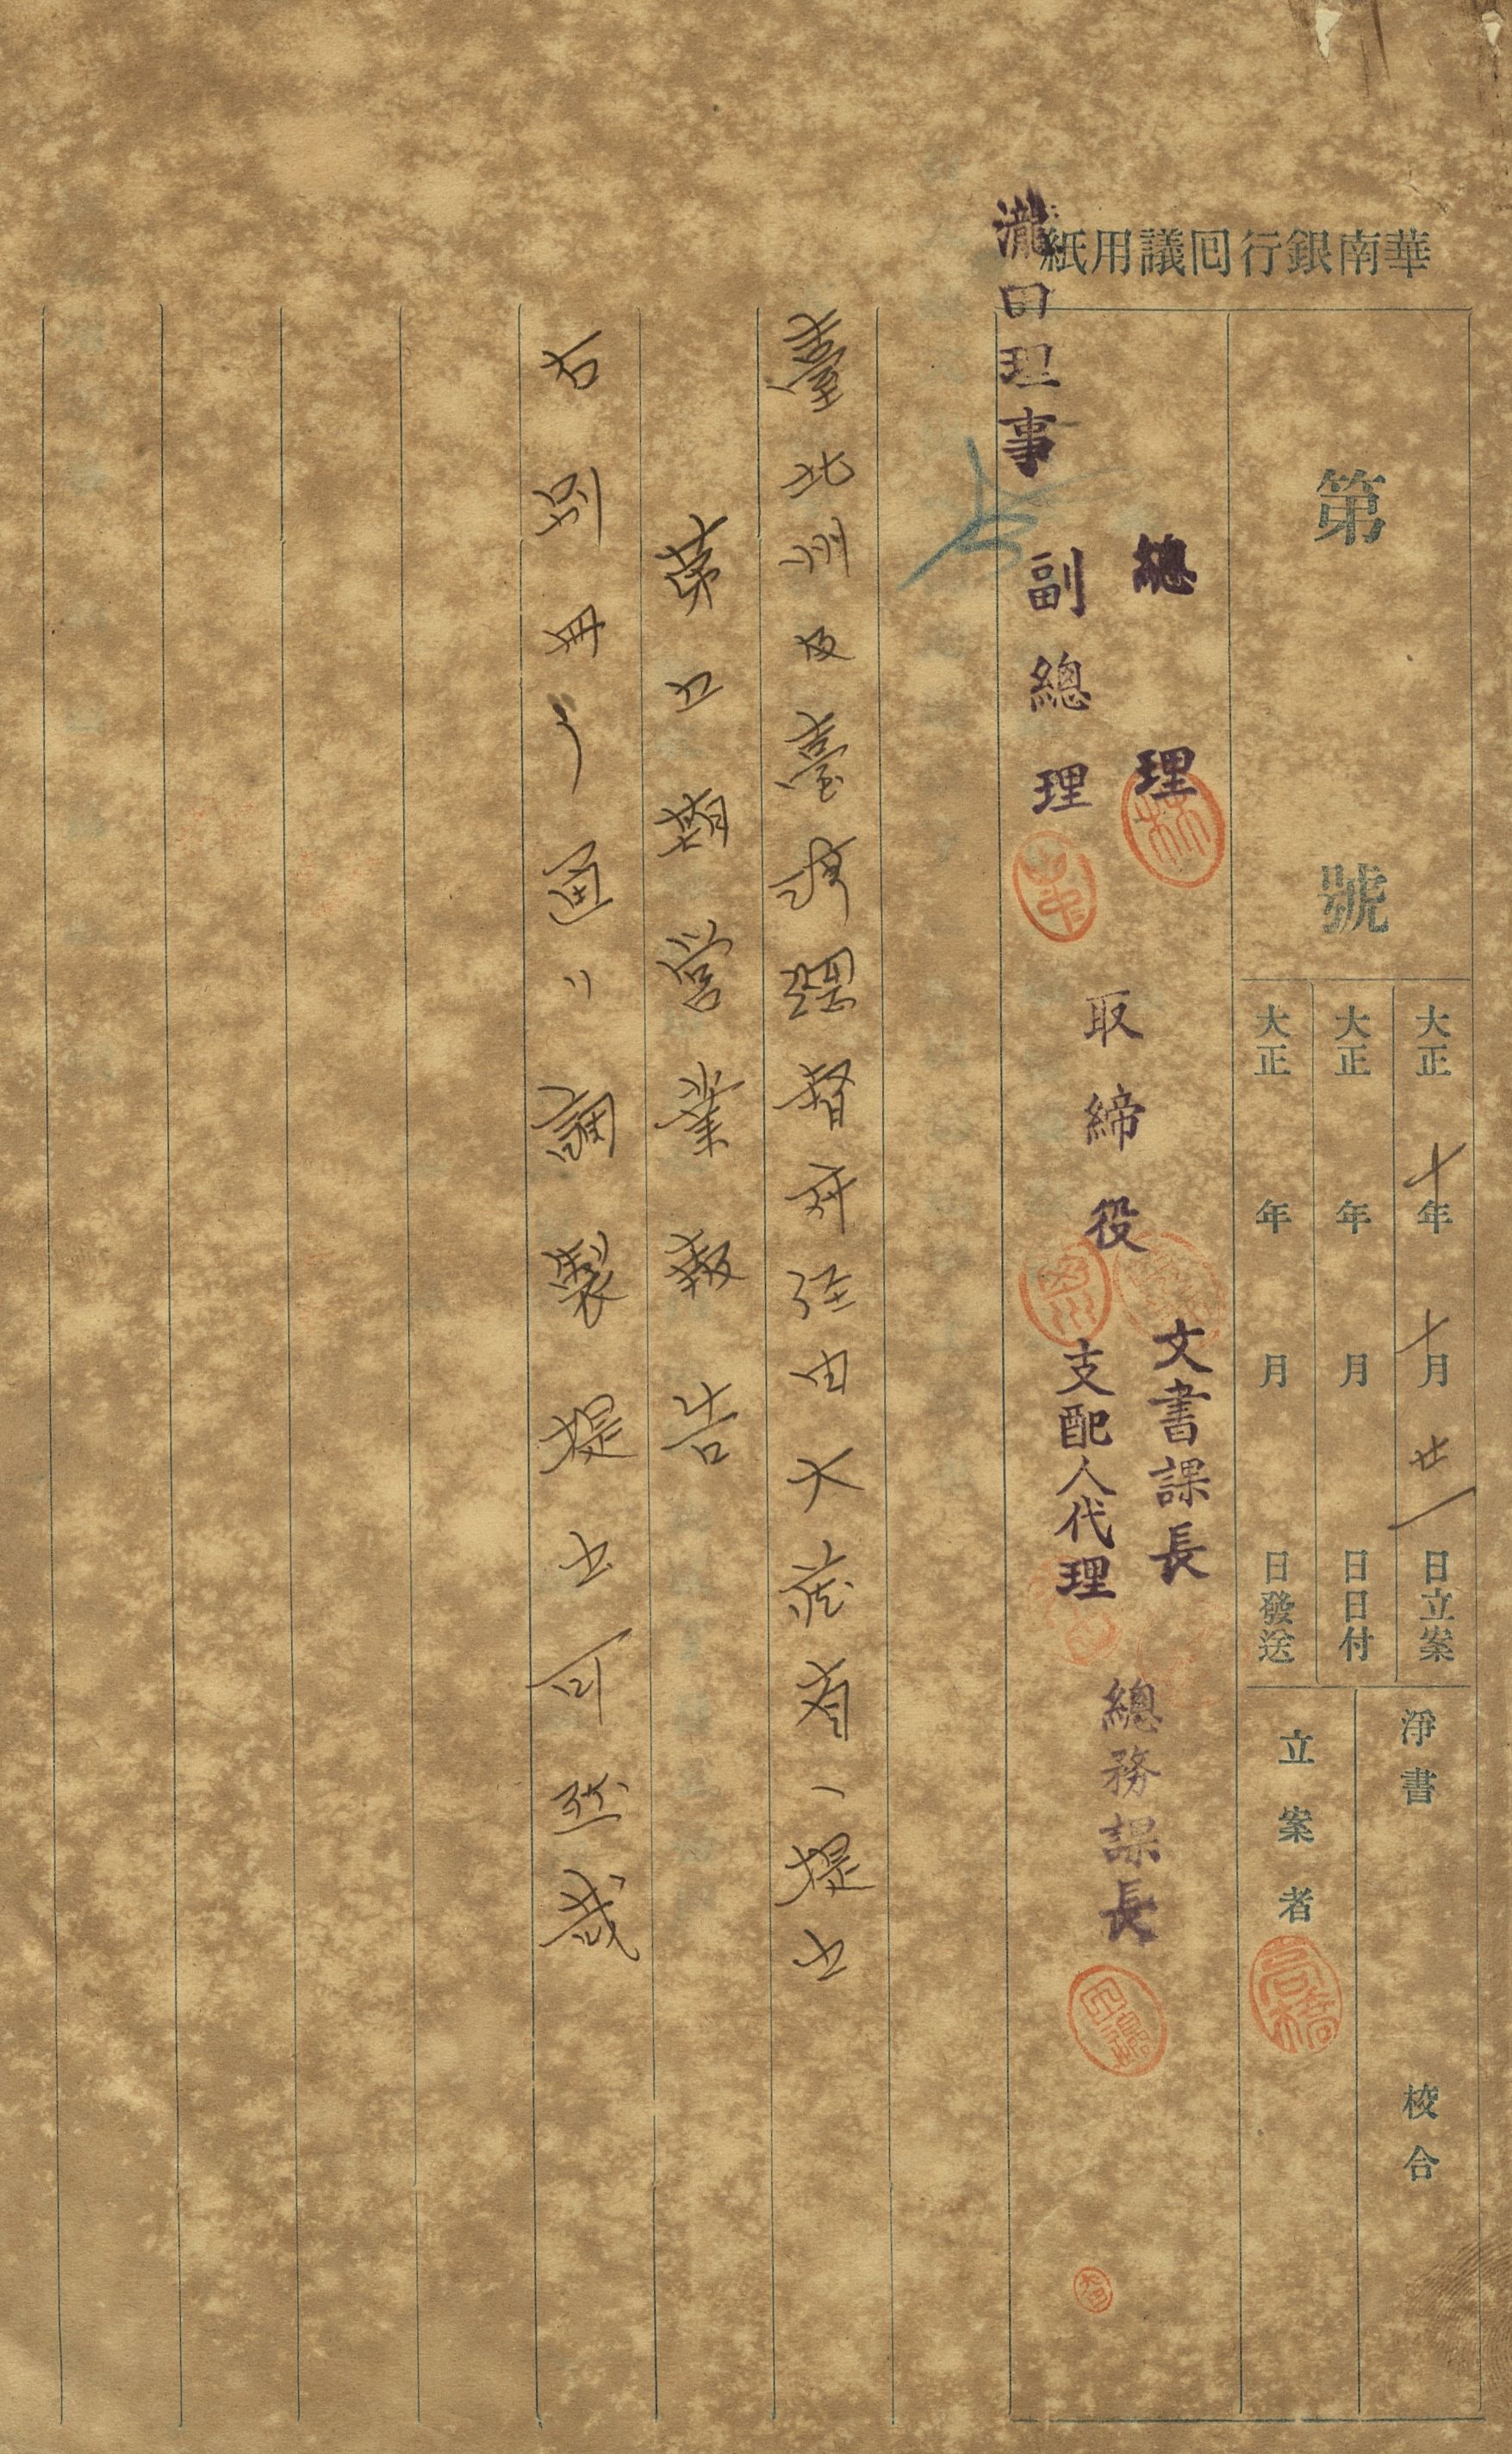 華南銀行囘議用紙
第 號
大正十年十月廿一日立案
大正 年 月 日日付
大正 年 月 日發送
淨書 校合
立案者
高橋
總理
林
副總理
瀧田理事
取締役
文書課長
支配人代理
總務課長
臺北州及臺灣總督府経由大蔵省ヘ提出
第五期営業報告
右別冊ノ通リ調製提出可然哉